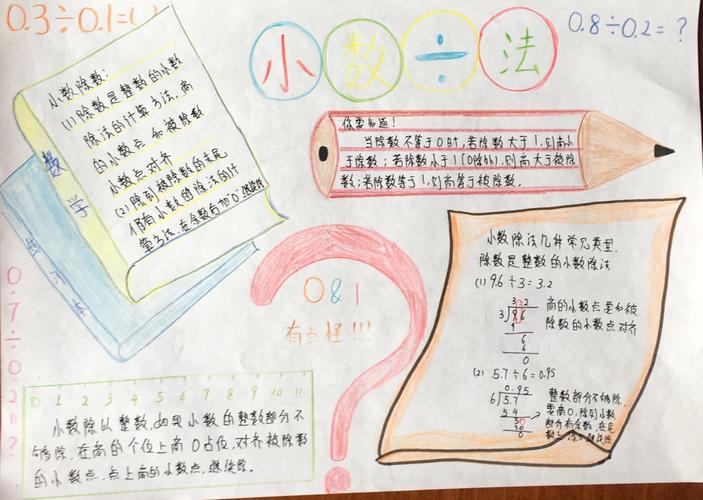 0.3÷0.1=
小数÷法
0.8÷0.2=?
小数除数:
(1)除数是整数的小数
除法的计算方法,商
的小数点和被除数
小数点对齐
(2)除到被除数的末尾
仍有小数的除法的计
算方法,在余数后加"0"继续除
数学
你要知道!
当除数不等于0时,若除数大于1,则商小
于除数;若除数小于1(0除外),则商大于被除
数;若除数等于1,则商等于被除数。
0.7÷0.2=?
0&1
有点怪!!!
小数除法几种常见类型.
除数是整数的小数除法
(1) 9.6÷3=3.2
3.2
3 9.6
9
6
6
0
商的小数点要和被
除数的小数点对齐
(2) 5.7÷6=0.95
0.95
6 5.7
5 4
30
30
0
整数部分不够除,
要商0,除到小数
部分有余数,在尾
数上添0继续除
0 1 2 3 4 5 6 7 8 9 10 11
小数除以整数,如果小数的整数部分不
够除,在商的个位上商0占位,对齐被除数
的小数点,点上商的小数点,继续除。